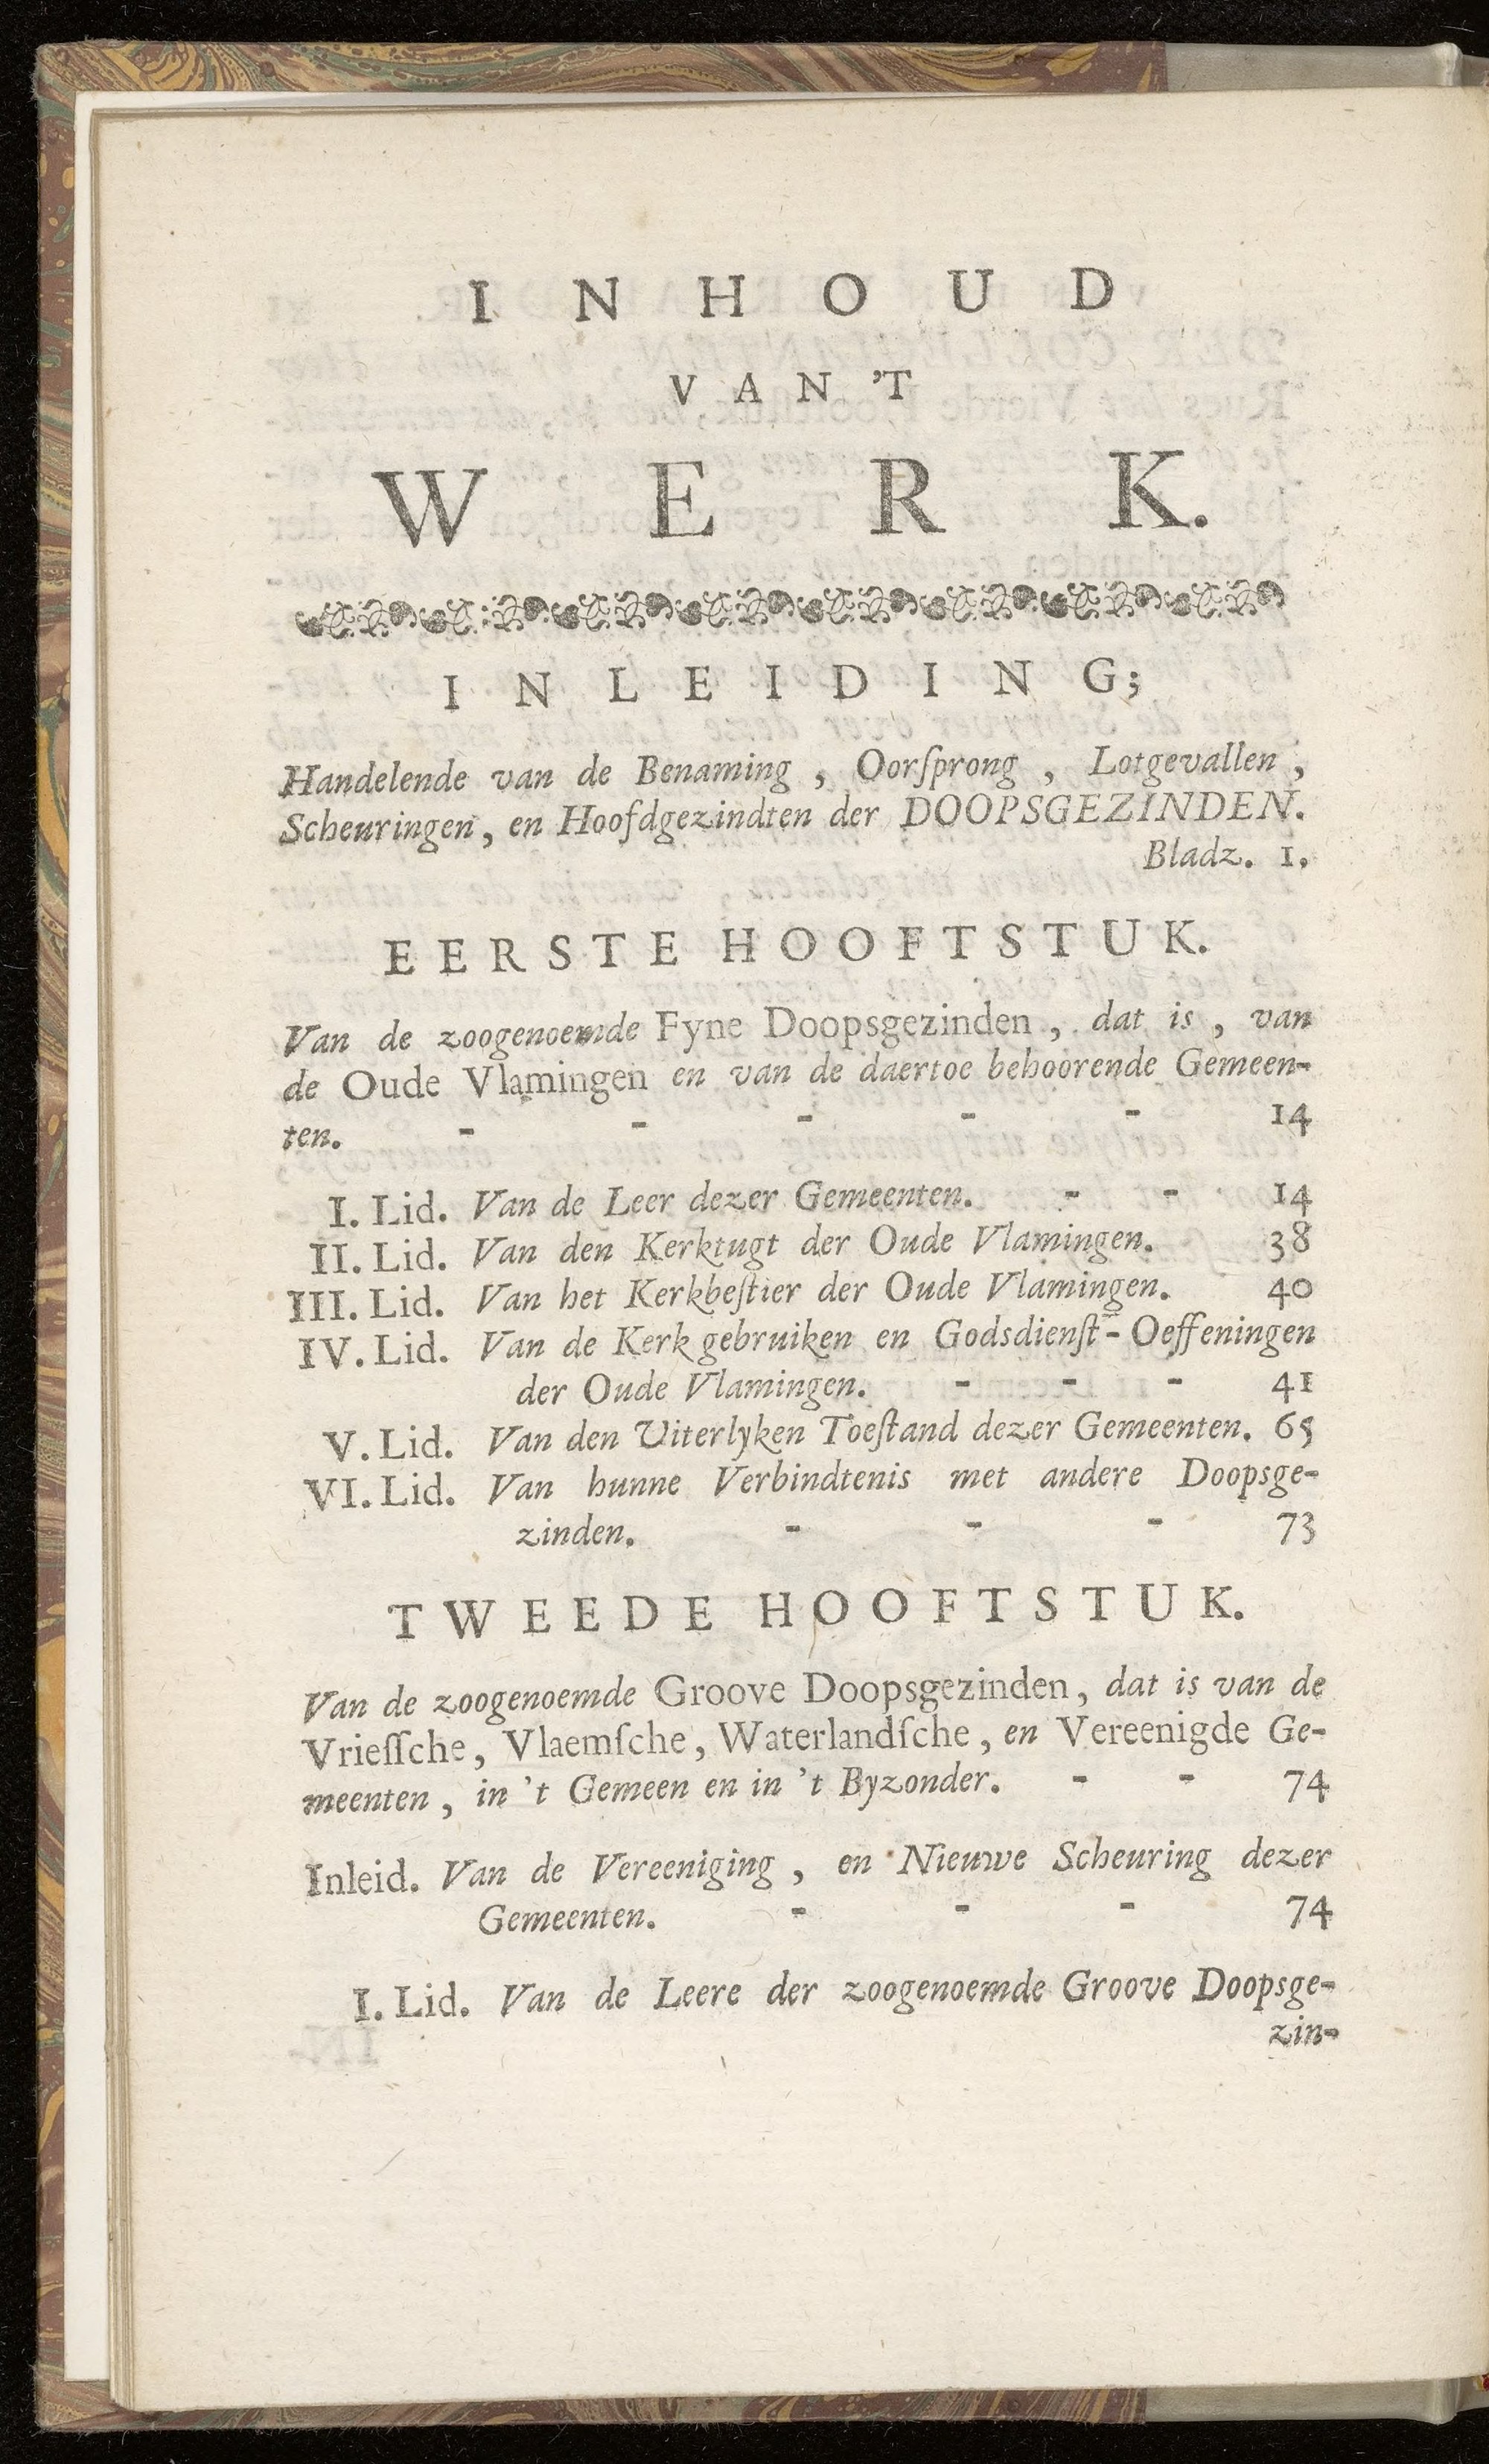 INHOUD
VAN 'T
WERK.
INLEIDING;
Handelende van de Benaming, Oorſprong, Lotgevallen,
Scheuringen, en Hoofdgezindten der DOOPSGEZINDEN.
Bladz. 1.
EERSTE HOOFTSTUK.
Van de zoogenoemde Fyne Doopsgezinden, dat is, van
de Oude Vlamingen en van de daertoe behoorende Gemeen-
ten. - - - - - 14
I. Lid. Van de Leer dezer Gemeenten. - - 14
II. Lid. Van den Kerktugt der Oude Vlamingen. 38
III. Lid. Van het Kerkbeſtier der Oude Vlamingen. 40
IV. Lid. Van de Kerkgebruiken en Godsdienſt-Oeffeningen
der Oude Vlamingen. - - - 41
V. Lid. Van den Uiterlyken Toeſtand dezer Gemeenten. 65
VI. Lid. Van hunne Verbindtenis met andere Doopsge-
zinden. - - - 73
TWEEDE HOOFTSTUK.
Van de zoogenoemde Groove Doopsgezinden, dat is van de
Vrieſſche, Vlaemſche, Waterlandſche, en Vereenigde Ge-
meenten, in 't Gemeen en in 't Byzonder. - - 74
Inleid. Van de Vereeniging, en Nieuwe Scheuring dezer
Gemeenten. - - - 74
I. Lid. Van de Leere der zoogenoemde Groove Doopsge-
zin-